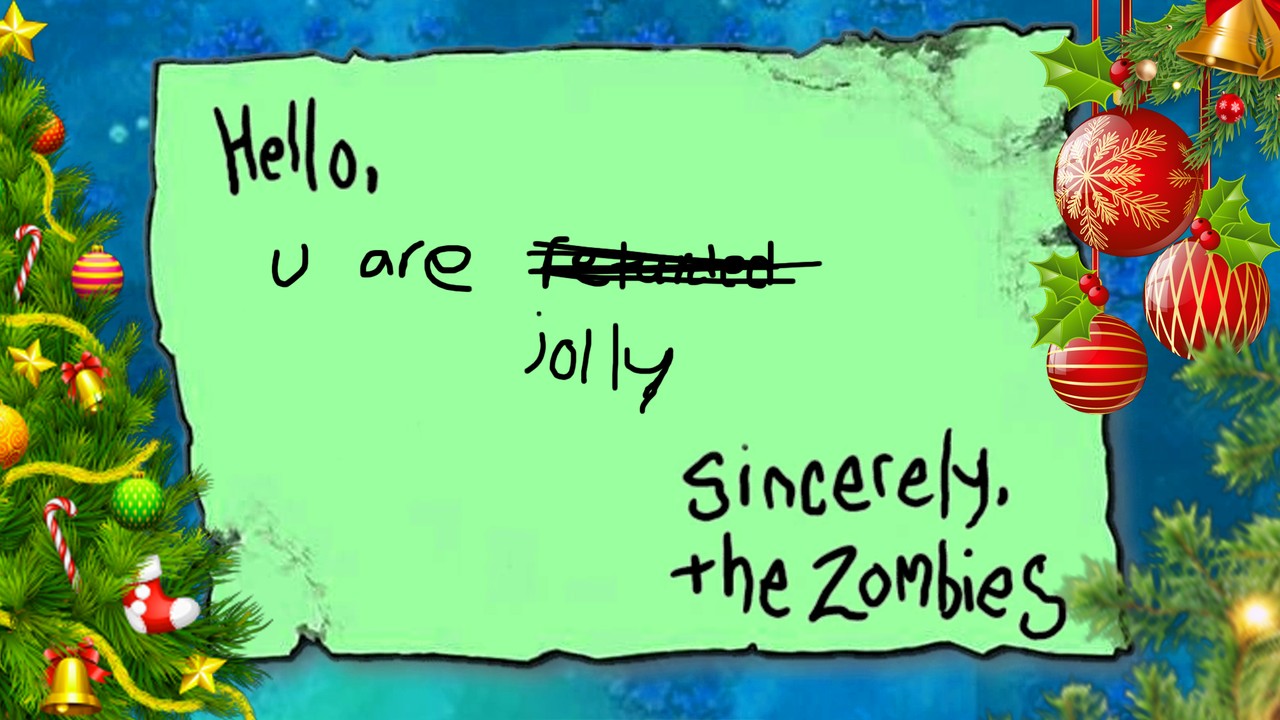 Hello,
u are retarded
jolly
sincerely,
the Zombies